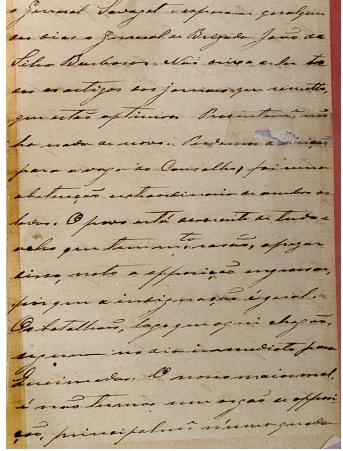 General Savaget e esperam qualquer
dos dias o General de Brigada João da
Silva Barbosa. Não deixe de ler to
dos os artigos dos jornaes que remetto,
que estão optimos. Presentemte não
ha nada de novo. Perdemos a eleição
para a vaga do Conselho, foi uma
abstenção extraordinaria de ambos os
lados. O povo está descrente de tudo e
acho que tem mto razão, apezar
disso, noto a opposição engrossar,
porque a indignação é geral.
Os batalhões, logo que aqui chegão,
seguem no dia immediato para
Queimadas. O nosso maior mal,
é não termos um orgão de opposi
ção, principalmte n'uma quadra